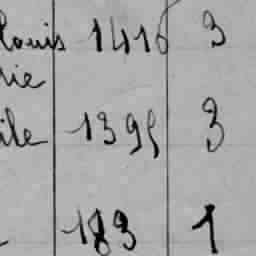 Louis 1416 3
rie
ile 1395 3
183 1